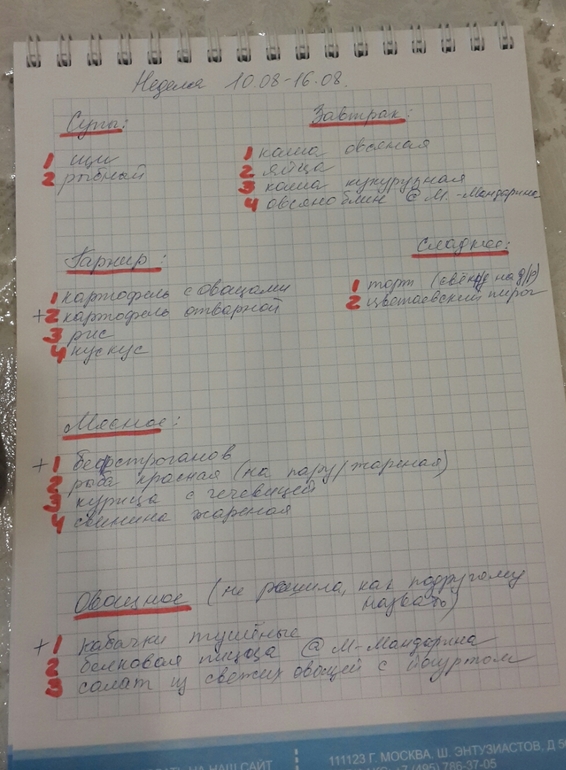 Неделя 10.08-16.08.
Супы:
1 щи
2 рыбный
Завтрак:
1 каша овсяная
2 яйца
3 каша кукурузная
4 овсяноблин @М.-Мандарина
Гарнир:
1 картофель с овощами
+2 картофель отварной
3 рис
4 кускус
Сладкое:
1 торт (свёкру на д/р)
2 цветаевский пирог
Мясное:
+ 1 бефстроганов
2 рыба красная (на пару/жареная)
3 курица с чечевицей
4 свинина жареная
Овощное (не решила, как подругому
назвать)
+ 1 кабачки тушёные
2 белковая пицца @М-Мандарина
3 салат из свежих овощей с йогуртом
НА НАШ САЙТ
111123 Г. МОСКВА, Ш. ЭНТУЗИАСТОВ, Д 5
+7 (495) 786-37-05